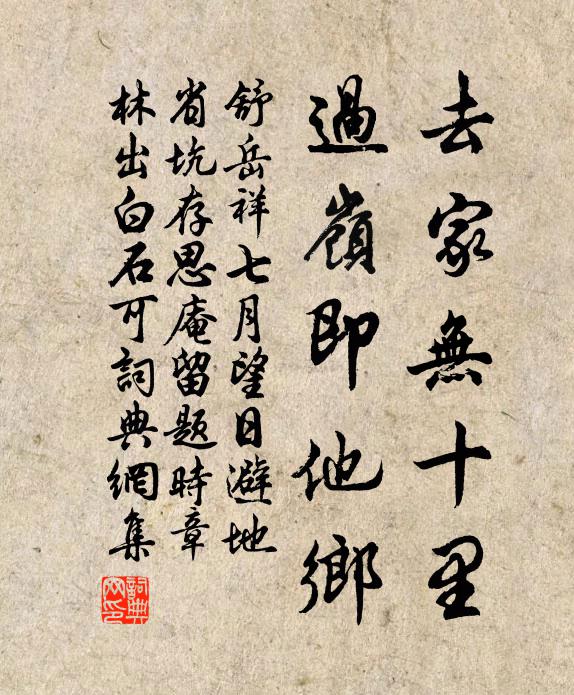 去家無十里
過嶺即他鄉
舒岳祥七月望日避地
省坑存思庵留題時章
林出白石可詞典網集
詞典網印